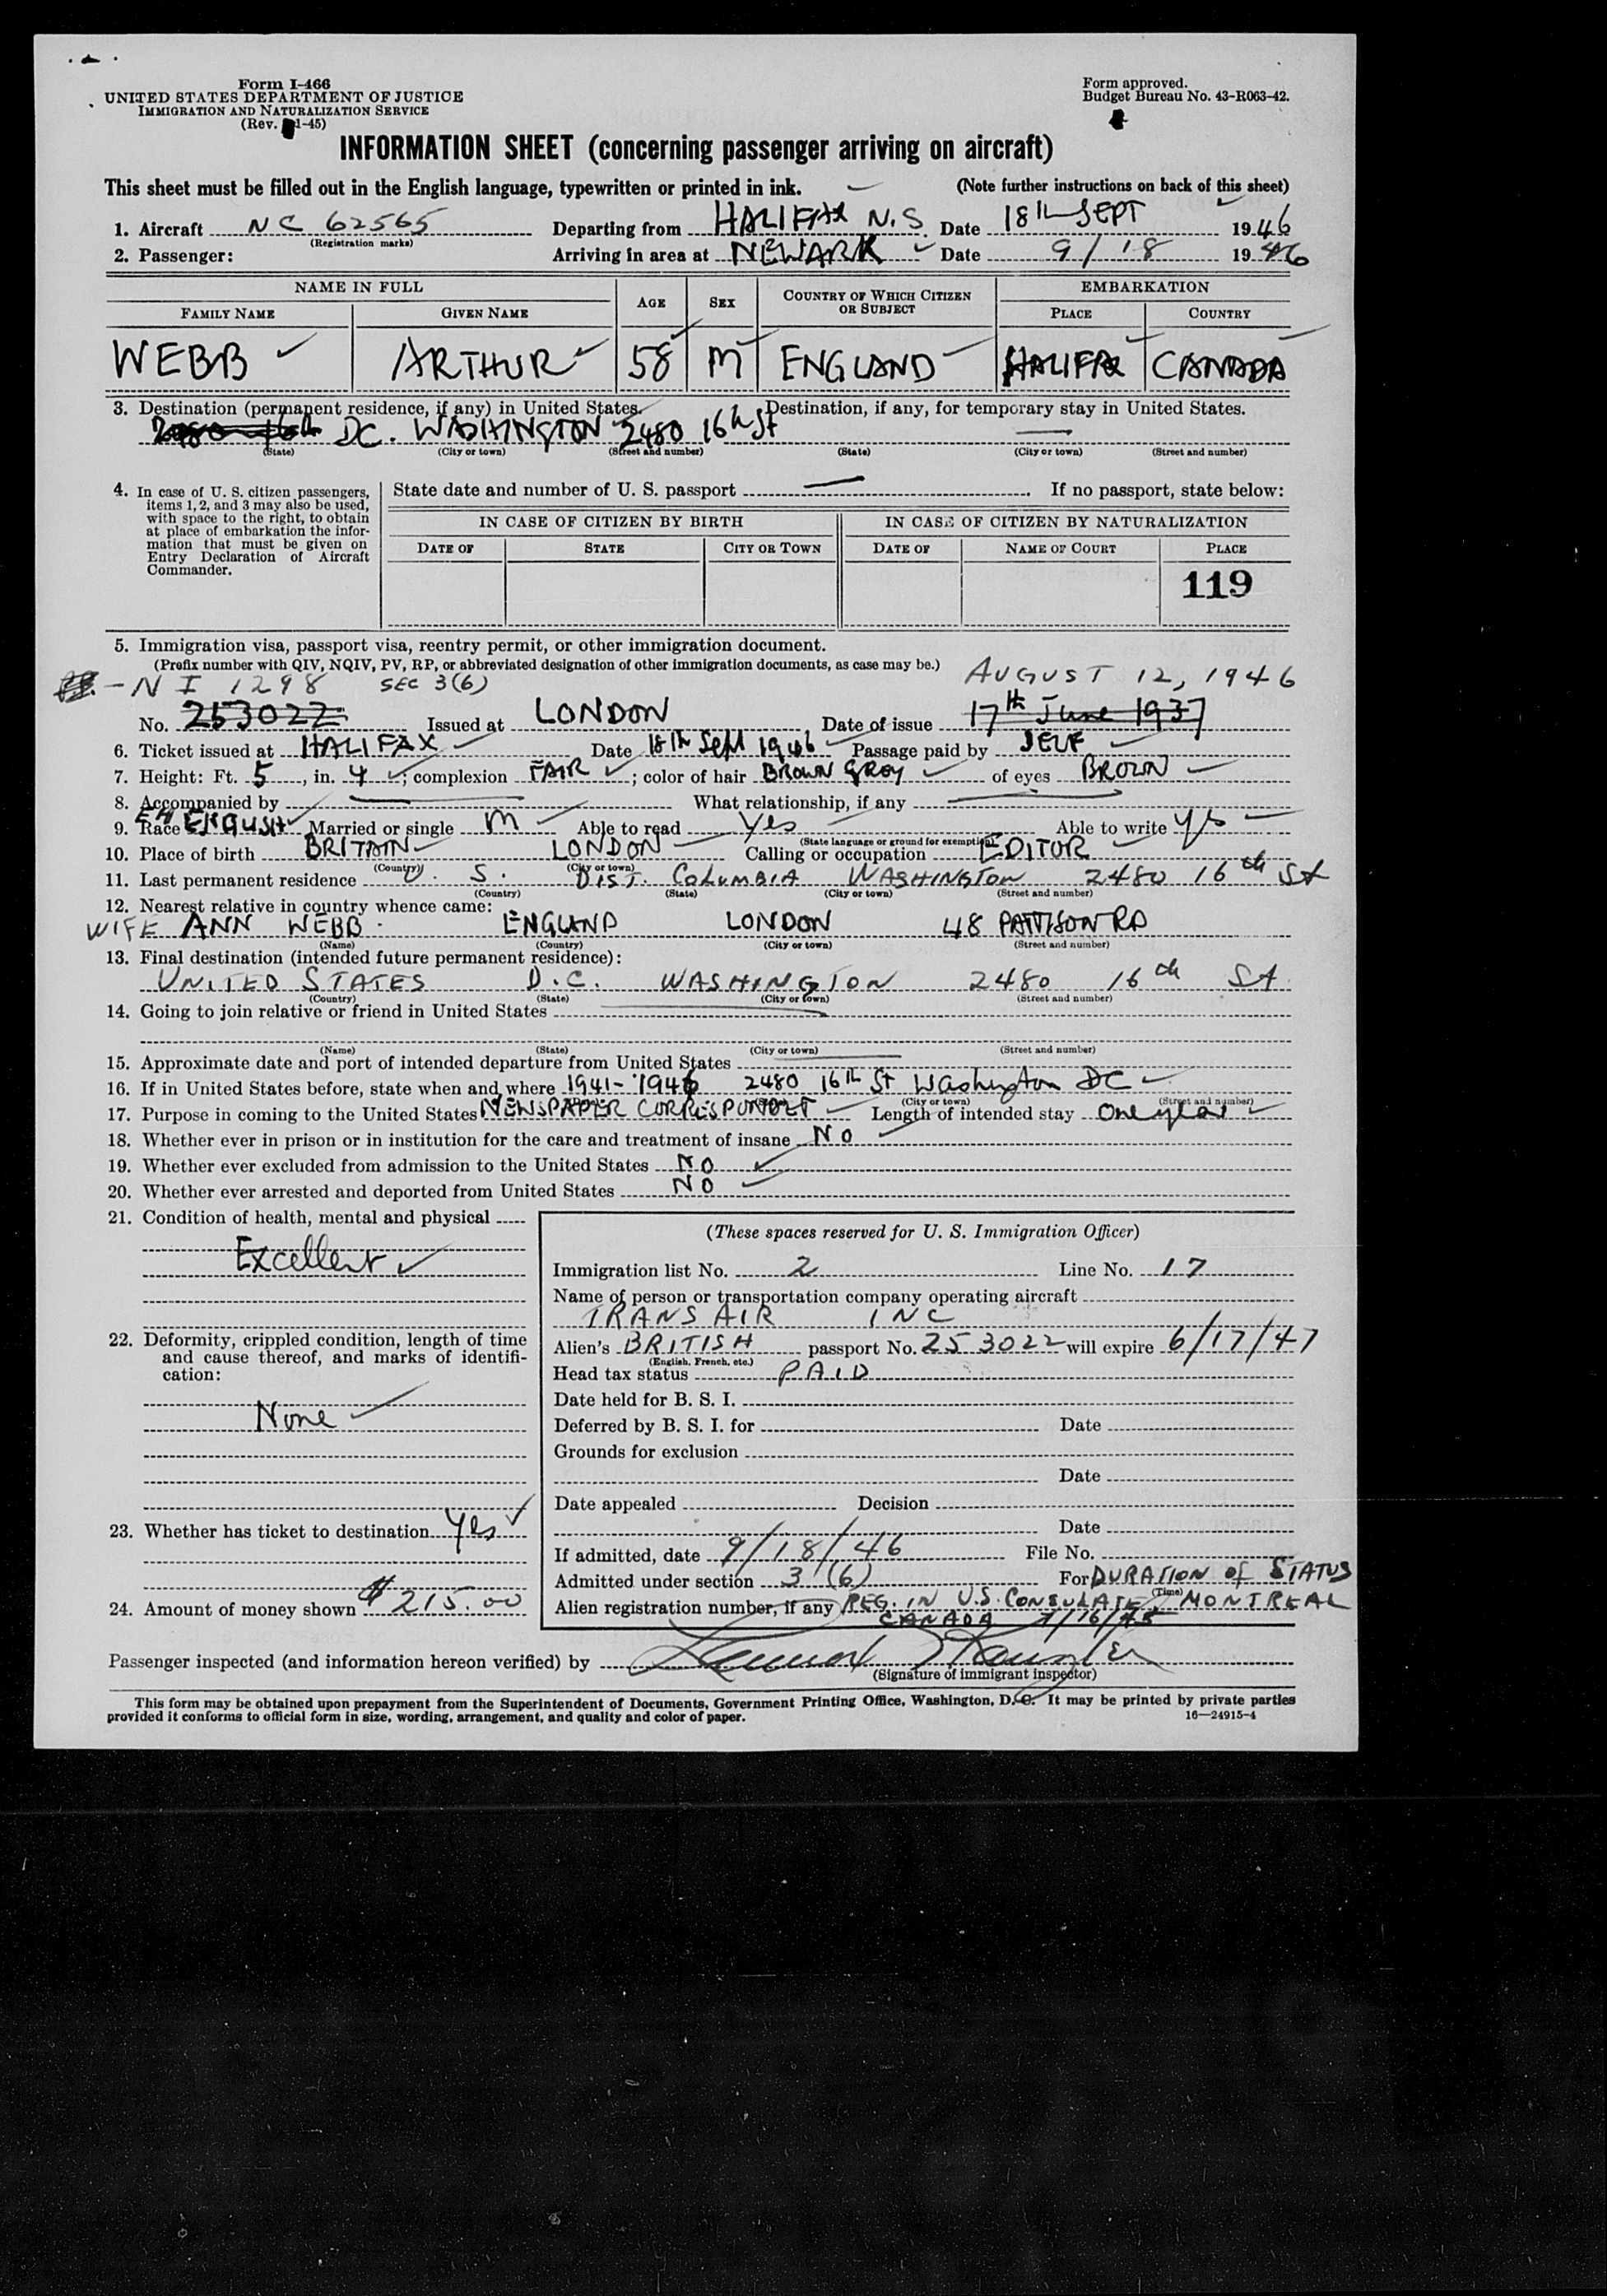 Form I-466
UNITED STATES DEPARTMENT OF JUSTICE
IMMIGRATION AND NATURALIZATION SERVICE
(Rev. 1-45)
Form approved.
Budget Bureau No. 43-R063-42.
INFORMATION SHEET (concerning passenger arriving on aircraft)
This sheet must be filled out in the English language, typewritten or printed in ink. (Note further instructions on back of this sheet)
1. Aircraft NC 62565 Departing from HALIFAX N.S. Date 18th SEPT 1946
(Registration marks)
2. Passenger: Arriving in area at NEWARK Date 9/18 1946
NAME IN FULL AGE SEX COUNTRY OF WHICH CITIZEN OR SUBJECT EMBARKATION
FAMILY NAME GIVEN NAME PLACE COUNTRY
WEBB ARTHUR 58 M ENGLAND HALIFAX CANADA
3. Destination (permanent residence, if any) in United States. Destination, if any, for temporary stay in United States.
2480 16th DC. WASHINGTON 2480 16th St
(State) (City or town) (Street and number) (State) (City or town) (Street and number)
4. In case of U. S. citizen passengers,
items 1, 2, and 3 may also be used,
with space to the right, to obtain
at place of embarkation the infor-
mation that must be given on
Entry Declaration of Aircraft
Commander.
State date and number of U. S. passport If no passport, state below:
IN CASE OF CITIZEN BY BIRTH IN CASE OF CITIZEN BY NATURALIZATION
DATE OF STATE CITY OR TOWN DATE OF NAME OF COURT PLACE
119
5. Immigration visa, passport visa, reentry permit, or other immigration document.
(Prefix number with QIV, NQIV, PV, RP, or abbreviated designation of other immigration documents, as case may be.)
- N I 1298 SEC 3(6) AUGUST 12, 1946
No. 253022 Issued at LONDON Date of issue 17th June 1937
6. Ticket issued at HALIFAX Date 18th Sept 1946 Passage paid by SELF
7. Height: Ft. 5, in. 4; complexion FAIR; color of hair BROWN GREY of eyes BROWN
8. Accompanied by What relationship, if any
9. Race ENGLISH Married or single M Able to read Yes Able to write Yes
(State language or ground for exemption)
10. Place of birth BRITAIN LONDON Calling or occupation EDITOR
(Country) (City or town)
11. Last permanent residence U. S. DIST. COLUMBIA WASHINGTON 2480 16th St
(Country) (State) (City or town) (Street and number)
12. Nearest relative in country whence came:
WIFE ANN WEBB. ENGLAND LONDON 48 PATTISON RD
(Name) (Country) (City or town) (Street and number)
13. Final destination (intended future permanent residence):
UNITED STATES D.C. WASHINGTON 2480 16th St
(Country) (State) (City or town) (Street and number)
14. Going to join relative or friend in United States
(Name) (State) (City or town) (Street and number)
15. Approximate date and port of intended departure from United States
16. If in United States before, state when and where 1941-1946 2480 16th St Washington DC
(City or town) (Street and number)
17. Purpose in coming to the United States NEWSPAPER CORRESPONDET Length of intended stay One year
18. Whether ever in prison or in institution for the care and treatment of insane No
19. Whether ever excluded from admission to the United States NO
20. Whether ever arrested and deported from United States NO
21. Condition of health, mental and physical
Excellent
22. Deformity, crippled condition, length of time
and cause thereof, and marks of identifi-
cation:
None
23. Whether has ticket to destination Yes
24. Amount of money shown $215.00
(These spaces reserved for U. S. Immigration Officer)
Immigration list No. 2 Line No. 17
Name of person or transportation company operating aircraft
TRANS AIR INC
Alien's BRITISH passport No. 253022 will expire 6/17/47
(English, French, etc.)
Head tax status PAID
Date held for B. S. I.
Deferred by B. S. I. for Date
Grounds for exclusion
Date
Date appealed Decision
Date
If admitted, date 9/18/46 File No.
Admitted under section 3 (6) For DURATION of STATUS
(Time)
Alien registration number, if any REG. IN U.S. CONSULATE, MONTREAL
CANADA /16/45
Passenger inspected (and information hereon verified) by
(Signature of immigrant inspector)
This form may be obtained upon prepayment from the Superintendent of Documents, Government Printing Office, Washington, D. C. It may be printed by private parties
provided it conforms to official form in size, wording, arrangement, and quality and color of paper.
16—24915-4